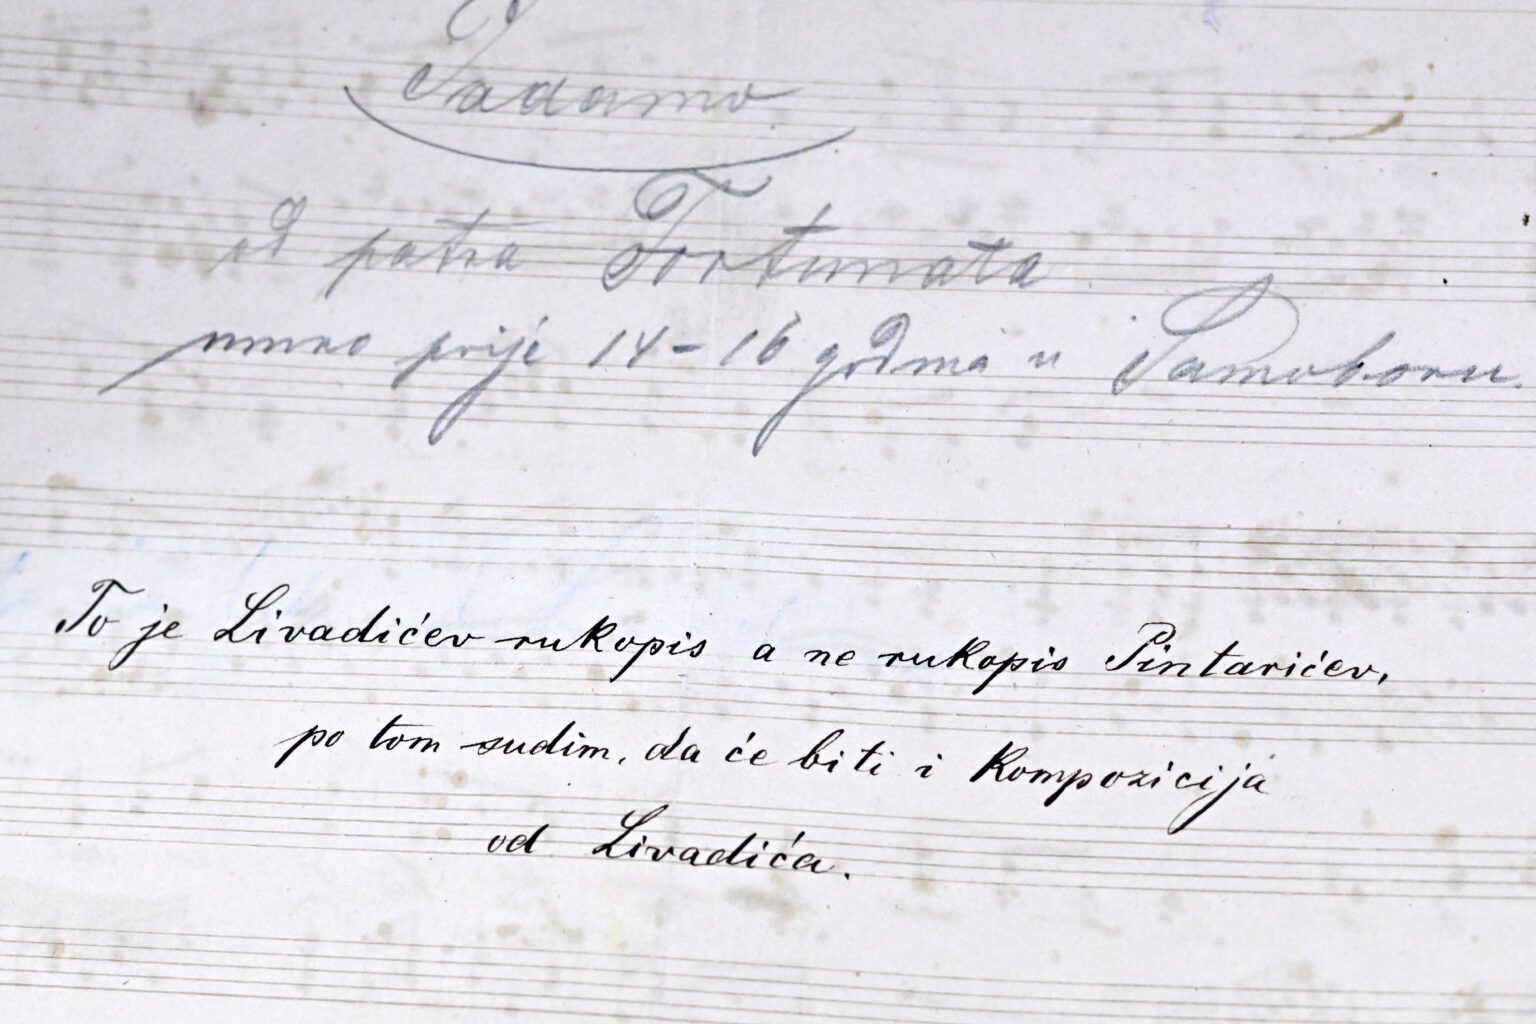 od patra Fortunata
umro prije 14-16 godina u Samoboru.
To je Livadićev rukopis a ne rukopis Pintarićev,
po tom sudim, da će biti i kompozicija
od Livadića.